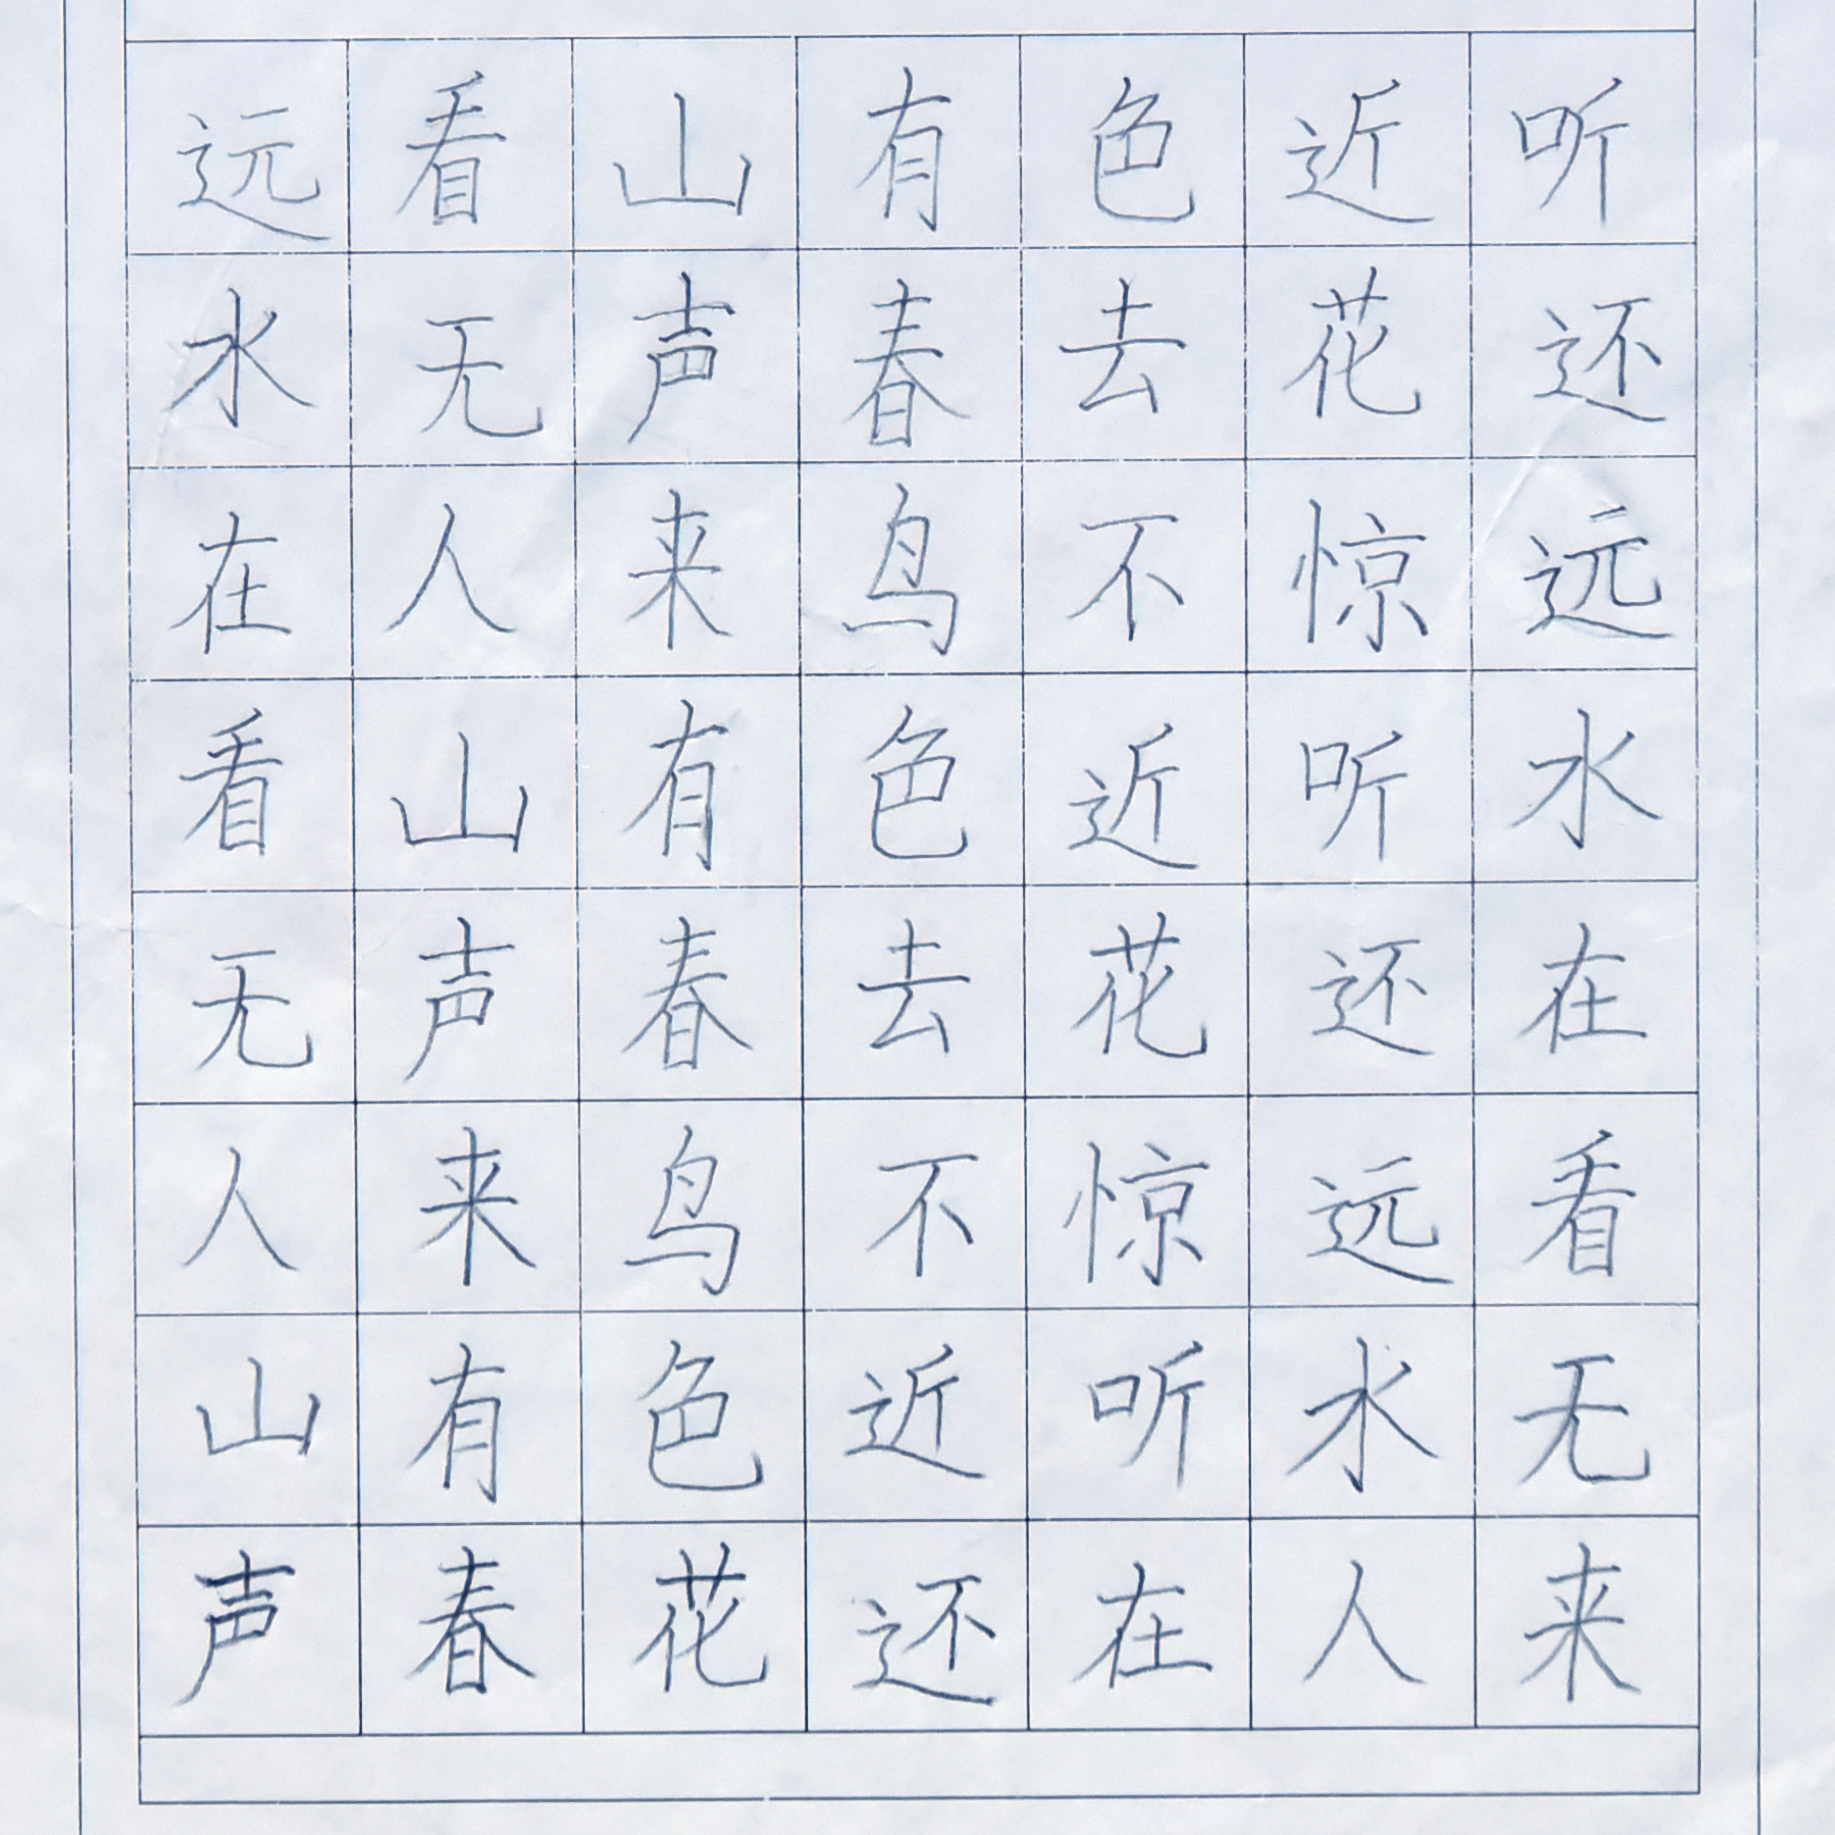 远看山有色近听
水无声春去花还
在人来鸟不惊远
看山有色近听水
无声春去花还在
人来鸟不惊远看
山有色近听水无
声春花还在人来